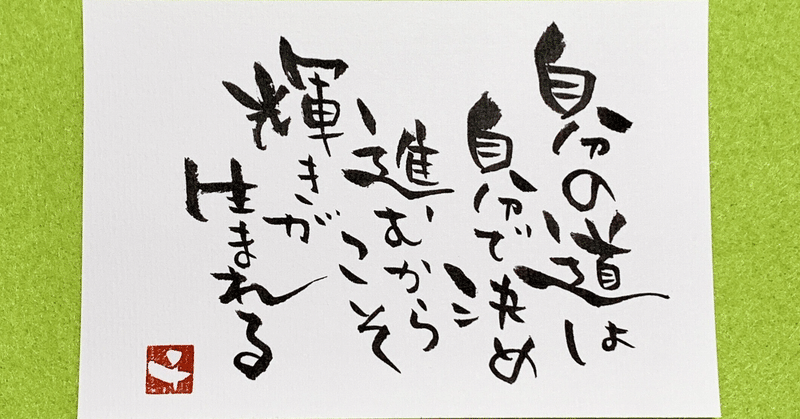 自分の道は
自分で決め
進むからこそ
輝きが
生まれる